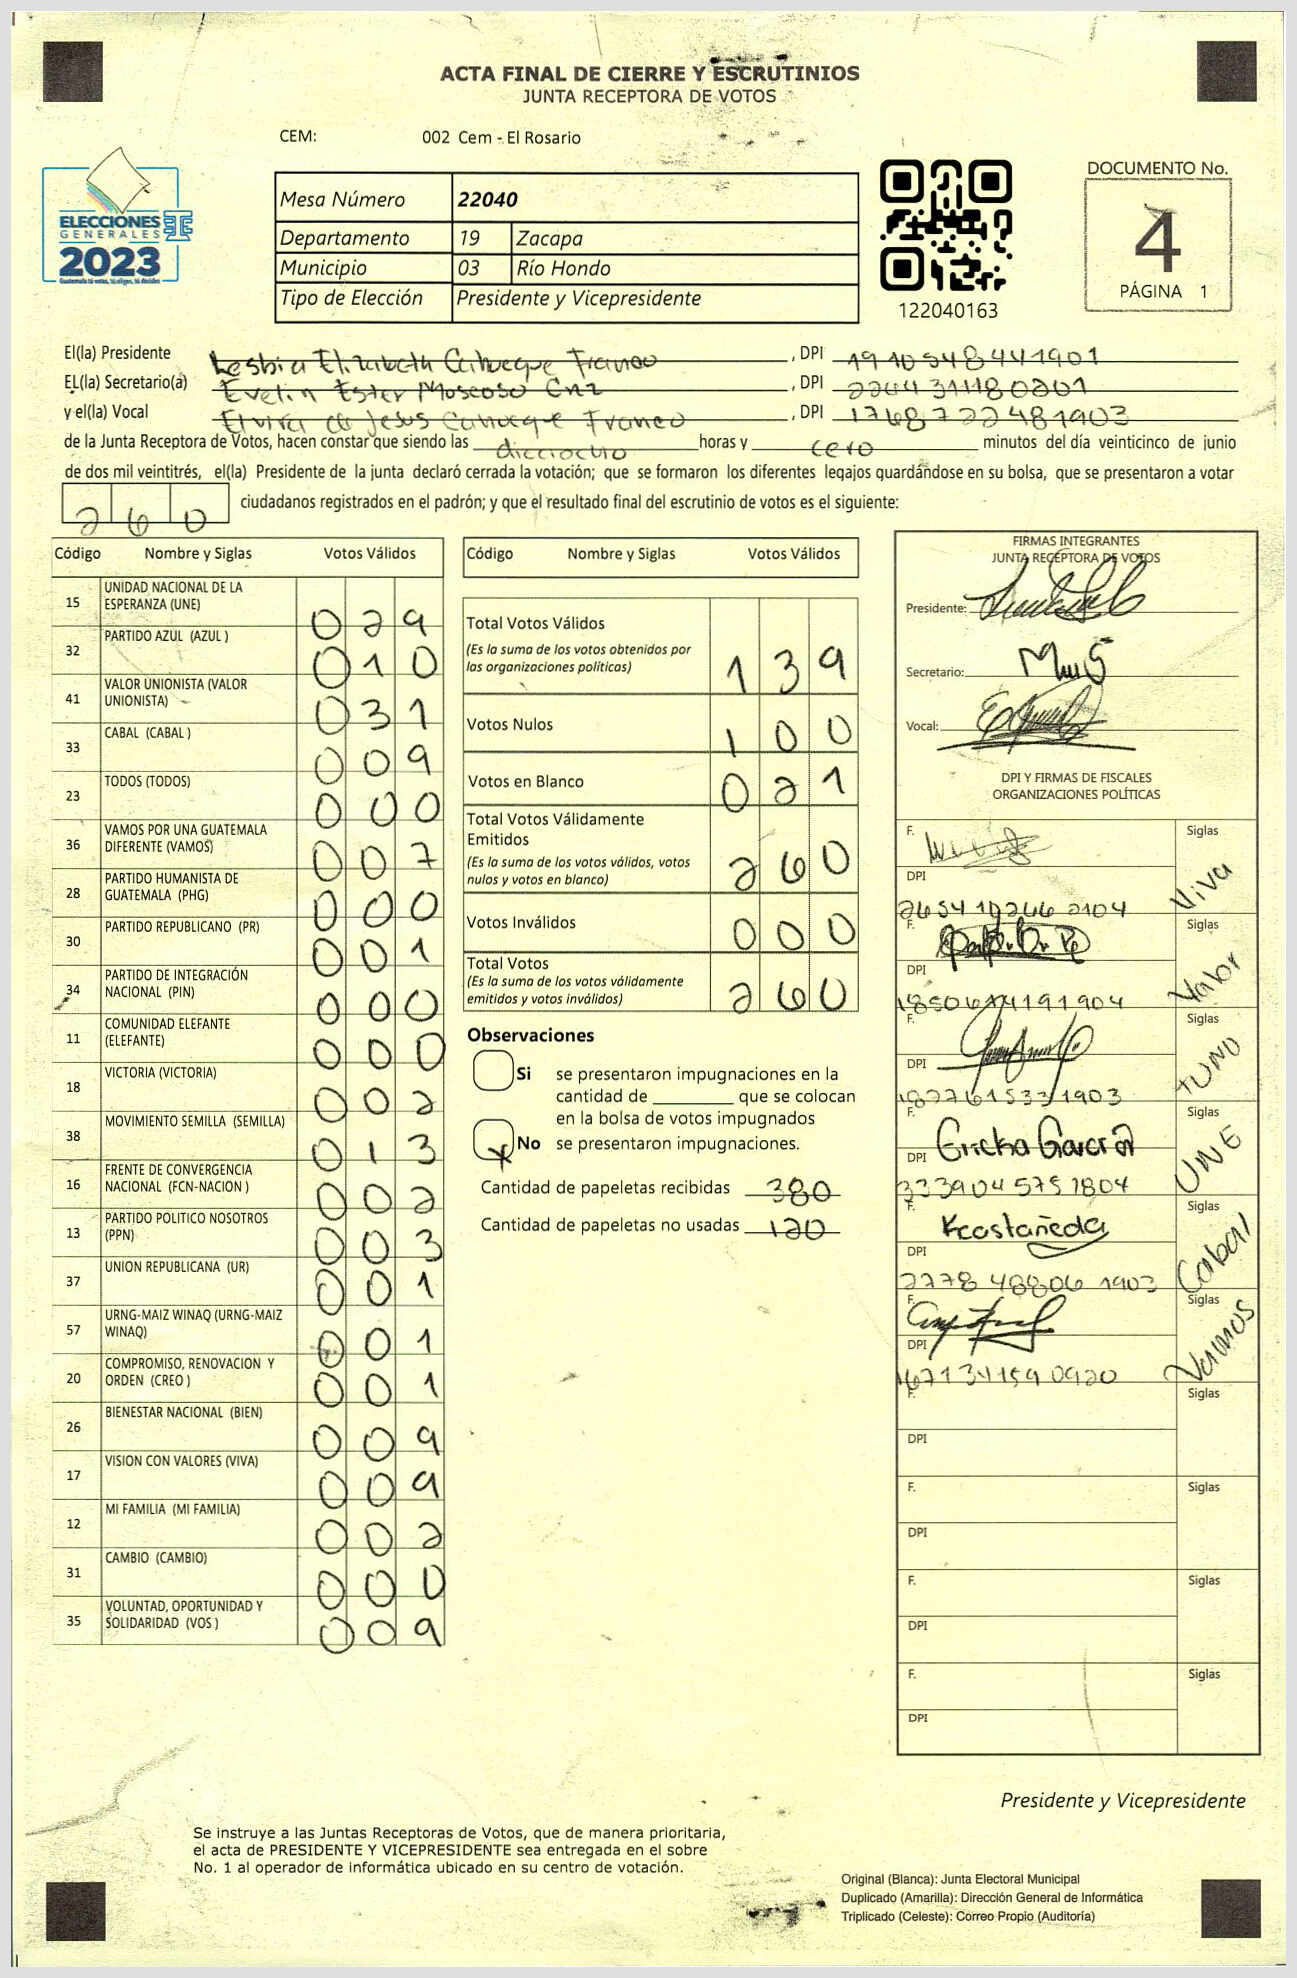 ACTA FINAL DE CIERRE Y ESCRUTINIOS
JUNTA RECEPTORA DE VOTOS
CEM: 002 Cem - El Rosario
ELECCIONES
GENERALES
2023
Guatemala tú votas, tú eliges, tú decides
Mesa Número 22040
Departamento 19 Zacapa
Municipio 03 Río Hondo
Tipo de Elección Presidente y Vicepresidente
122040163
DOCUMENTO No.
4
PÁGINA 1
El(la) Presidente Lesbia Elizabeth Cahueque Franco, DPI 1910548441901
EL(la) Secretario(a) Evelin Ester Moscoso Cruz, DPI 2244311180201
y el(la) Vocal Elvira de Jesus Cahueque Franco, DPI 1768722481903
de la Junta Receptora de Votos, hacen constar que siendo las dieciocho horas y cero minutos del día veinticinco de junio
de dos mil veintitrés, el(la) Presidente de la junta declaró cerrada la votación; que se formaron los diferentes legajos guardándose en su bolsa, que se presentaron a votar
260 ciudadanos registrados en el padrón; y que el resultado final del escrutinio de votos es el siguiente:
Código Nombre y Siglas Votos Válidos
15 UNIDAD NACIONAL DE LA ESPERANZA (UNE) 029
32 PARTIDO AZUL (AZUL ) 010
41 VALOR UNIONISTA (VALOR UNIONISTA) 031
33 CABAL (CABAL ) 009
23 TODOS (TODOS) 000
36 VAMOS POR UNA GUATEMALA DIFERENTE (VAMOS) 007
28 PARTIDO HUMANISTA DE GUATEMALA (PHG) 000
30 PARTIDO REPUBLICANO (PR) 001
34 PARTIDO DE INTEGRACIÓN NACIONAL (PIN) 000
11 COMUNIDAD ELEFANTE (ELEFANTE) 000
18 VICTORIA (VICTORIA) 002
38 MOVIMIENTO SEMILLA (SEMILLA) 013
16 FRENTE DE CONVERGENCIA NACIONAL (FCN-NACION ) 002
13 PARTIDO POLITICO NOSOTROS (PPN) 003
37 UNION REPUBLICANA (UR) 001
57 URNG-MAIZ WINAQ (URNG-MAIZ WINAQ) 001
20 COMPROMISO, RENOVACION Y ORDEN (CREO ) 001
26 BIENESTAR NACIONAL (BIEN) 009
17 VISION CON VALORES (VIVA) 009
12 MI FAMILIA (MI FAMILIA) 002
31 CAMBIO (CAMBIO) 000
35 VOLUNTAD, OPORTUNIDAD Y SOLIDARIDAD (VOS ) 009
Código Nombre y Siglas Votos Válidos
Total Votos Válidos 139
(Es la suma de los votos obtenidos por
las organizaciones políticas)
Votos Nulos 100
Votos en Blanco 021
Total Votos Válidamente
Emitidos 260
(Es la suma de los votos válidos, votos
nulos y votos en blanco)
Votos Inválidos 000
Total Votos 260
(Es la suma de los votos válidamente
emitidos y votos inválidos)
Observaciones
Si se presentaron impugnaciones en la
cantidad de ________ que se colocan
en la bolsa de votos impugnados
x No se presentaron impugnaciones.
Cantidad de papeletas recibidas 380
Cantidad de papeletas no usadas 120
FIRMAS INTEGRANTES
JUNTA RECEPTORA DE VOTOS
Presidente:
Secretario:
Vocal:
DPI Y FIRMAS DE FISCALES
ORGANIZACIONES POLÍTICAS
F. Siglas Viva
DPI
F. Siglas Valor
DPI
F. Siglas
DPI 1827615331903
F. Ericka García Siglas UNE
DPI 3339045751804
F. Kcastañeda Siglas Cabal
DPI 2278488061903
F. Siglas Vamos
DPI 1671341590920
F. Siglas
DPI
F. Siglas
DPI
F. Siglas
DPI
F. Siglas
DPI
Presidente y Vicepresidente
Se instruye a las Juntas Receptoras de Votos, que de manera prioritaria,
el acta de PRESIDENTE Y VICEPRESIDENTE sea entregada en el sobre
No. 1 al operador de informática ubicado en su centro de votación.
Original (Blanca): Junta Electoral Municipal
Duplicado (Amarilla): Dirección General de Informática
Triplicado (Celeste): Correo Propio (Auditoría)